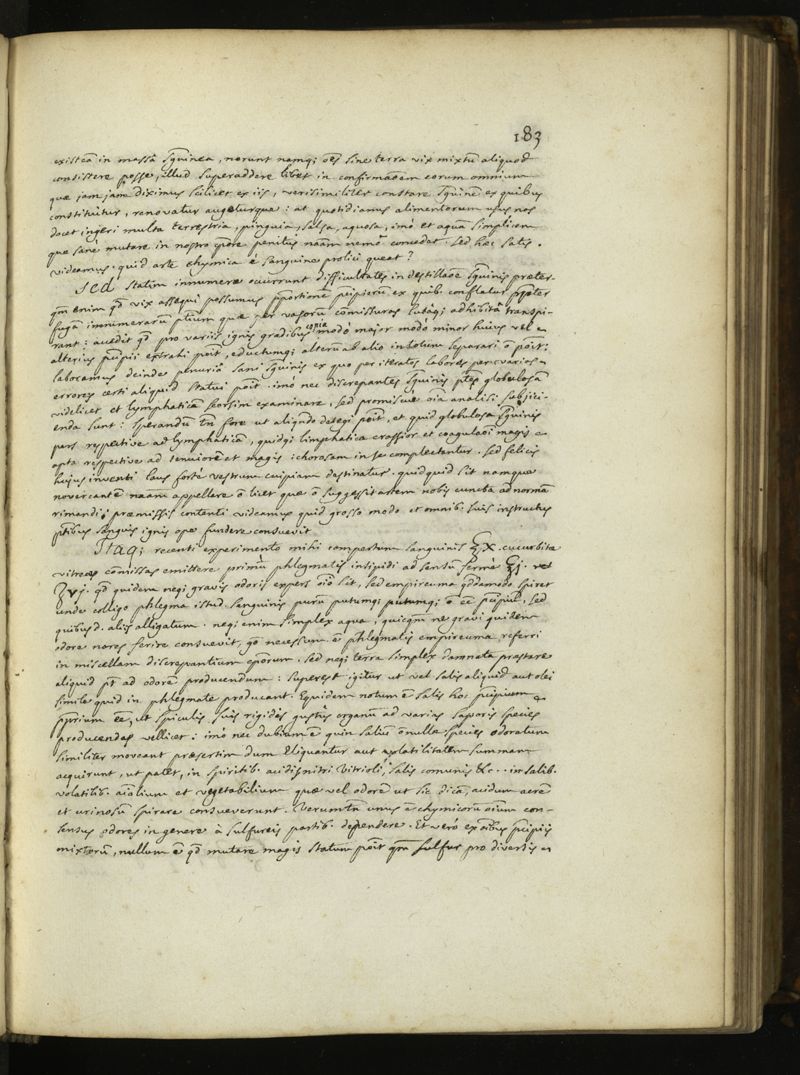 183
existeā in massâ sguinea, norunt namq; oēs sine terra vix mixtū aliquod
consistere posse, illud superaddere libet in confirmaōem eorum omnium
quæ jam jam diximus scilicet ex iis, verisimiliter constare sguinē ex quibus
constituitur, renovatur augeturque: at quotidianus alimentorum usus nos
docet injeri multa terrestria, pinguia, salsa, aquosa, imò et aquā simplicem
quæ sane mutare in nostro cpore penitus naām nemô concedet. Sed hæc satis.
videamus. quid arte chymica è sanguine prolici queat?
Sed statim innumeræ occurrunt difficultates in destillaōe sguinis præter-
qm enim qd vix assequi possumus pportionē pcipiorū ex quib. conflatur ppter
fugā innumerarum ptium quæ per vasorū cōmissuras lutāq; adhibitâ transpi-
rant: accedit qd pro variis ignis gradibus copia modò major modò minor huius vel
alterius pcipii extrahi poīt, eductumq; alterū ab alio in totum separari ō poīt:
laboramus deinde penuriâ sani sguinis ex quo per iteratos labores per varios
errores certi aliquid statui poīt. imò nec discrepantes sguinis ptes globulosā
videlicet et lymphaticā seorsim examinare, sed promiscue oīa analisi subjici-
enda sunt: sperandū tn fore ut aliqndo detegi poīt, et quid globulosa sguinis
pars respective ad lymphaticā, quidq; limphatica crassior et coagulaōi magis
apta respective ad tenuiorē et magis ichorosam in se complectentur. Sed felicis
hujus inventi laus fortè vestrum cuipiam destinatur. quidquid sit namque
novercantē naām appellare ō licet quæ ō suggessit artem nobis cuncta ad normā
rimandi; præmissis contenti videamus quid grosso modo et omnib. suis instructus
ptibus sanguis ignis ope fundere consuevit
Itaq; recenti experimento mihi compertum sanguinis ℥X. cucurbitæ
vitreæ cōmissas emittere primū phlegmatis insipidi ad sensū fermè
℥vj. qd quidem neq; gravis odoris expers sit, sed empireuma qdamodo spiret
unde colligo phlegma istud sanguinis purū putumq; putumq; ō eē pcipiū, sed
quibusd. aliis alligatum. neq; enim simplex aqua, quicqm ne gravi quidem
odore nares ferire consuevit, qō necessum ē phlegmatis empireuma referri
in miscellam discrepantium cporum. Sed neq; terra simplex damnata præstare
aliquid pt ad odorē producendum: superest igitur ut vel salis aliquid aut olei
simile quid in phlegmate producant. Equidem notum ē salis hoc pcipium
pprium eē, ut spiculis suis rigidis gustûs organū ad varias saporis species
producendas vellicet: imò nec dubium ē quin salia ōnullæ species odoratum
similiter moveant præsertim dum eliquantur aut volatilitatem summam
acquirunt, ut patet, in spiritib. acidis nitri vitrioli, salis comunis &c. in salib.
volatilib. aīalium et vegetabilium quæ vel odorē ut sic dicā, acidum acrē
et urinosū spirare consueverunt. Verumtn unus ē chymicorū oīum con-
sensus odores in genere à sulfureis partib. dependere. Et verò ex oībus pcipiis
mixtorū, nullum ē qd mutare magis statum poīt qm sulfur pro diversis